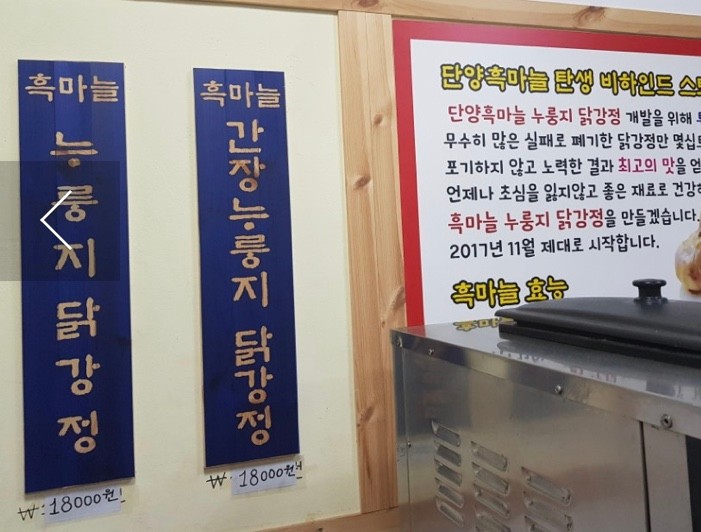 흑마늘
누룽지 닭강정
₩:18000원
흑마늘
간장누룽지 닭강정
₩:18000원
단양흑마늘 탄생 비하인드
단양흑마늘 누룽지 닭강정 개발을 위해
무수히 많은 실패로 폐기한 닭강정만
포기하지 않고 노력한 결과 최고의 맛을
언제나 초심을 잃지않고 좋은 재료로
흑마늘 누룽지 닭강정을 만들겠습니다.
2017년 11월 제대로 시작합니다.
흑마늘 효능